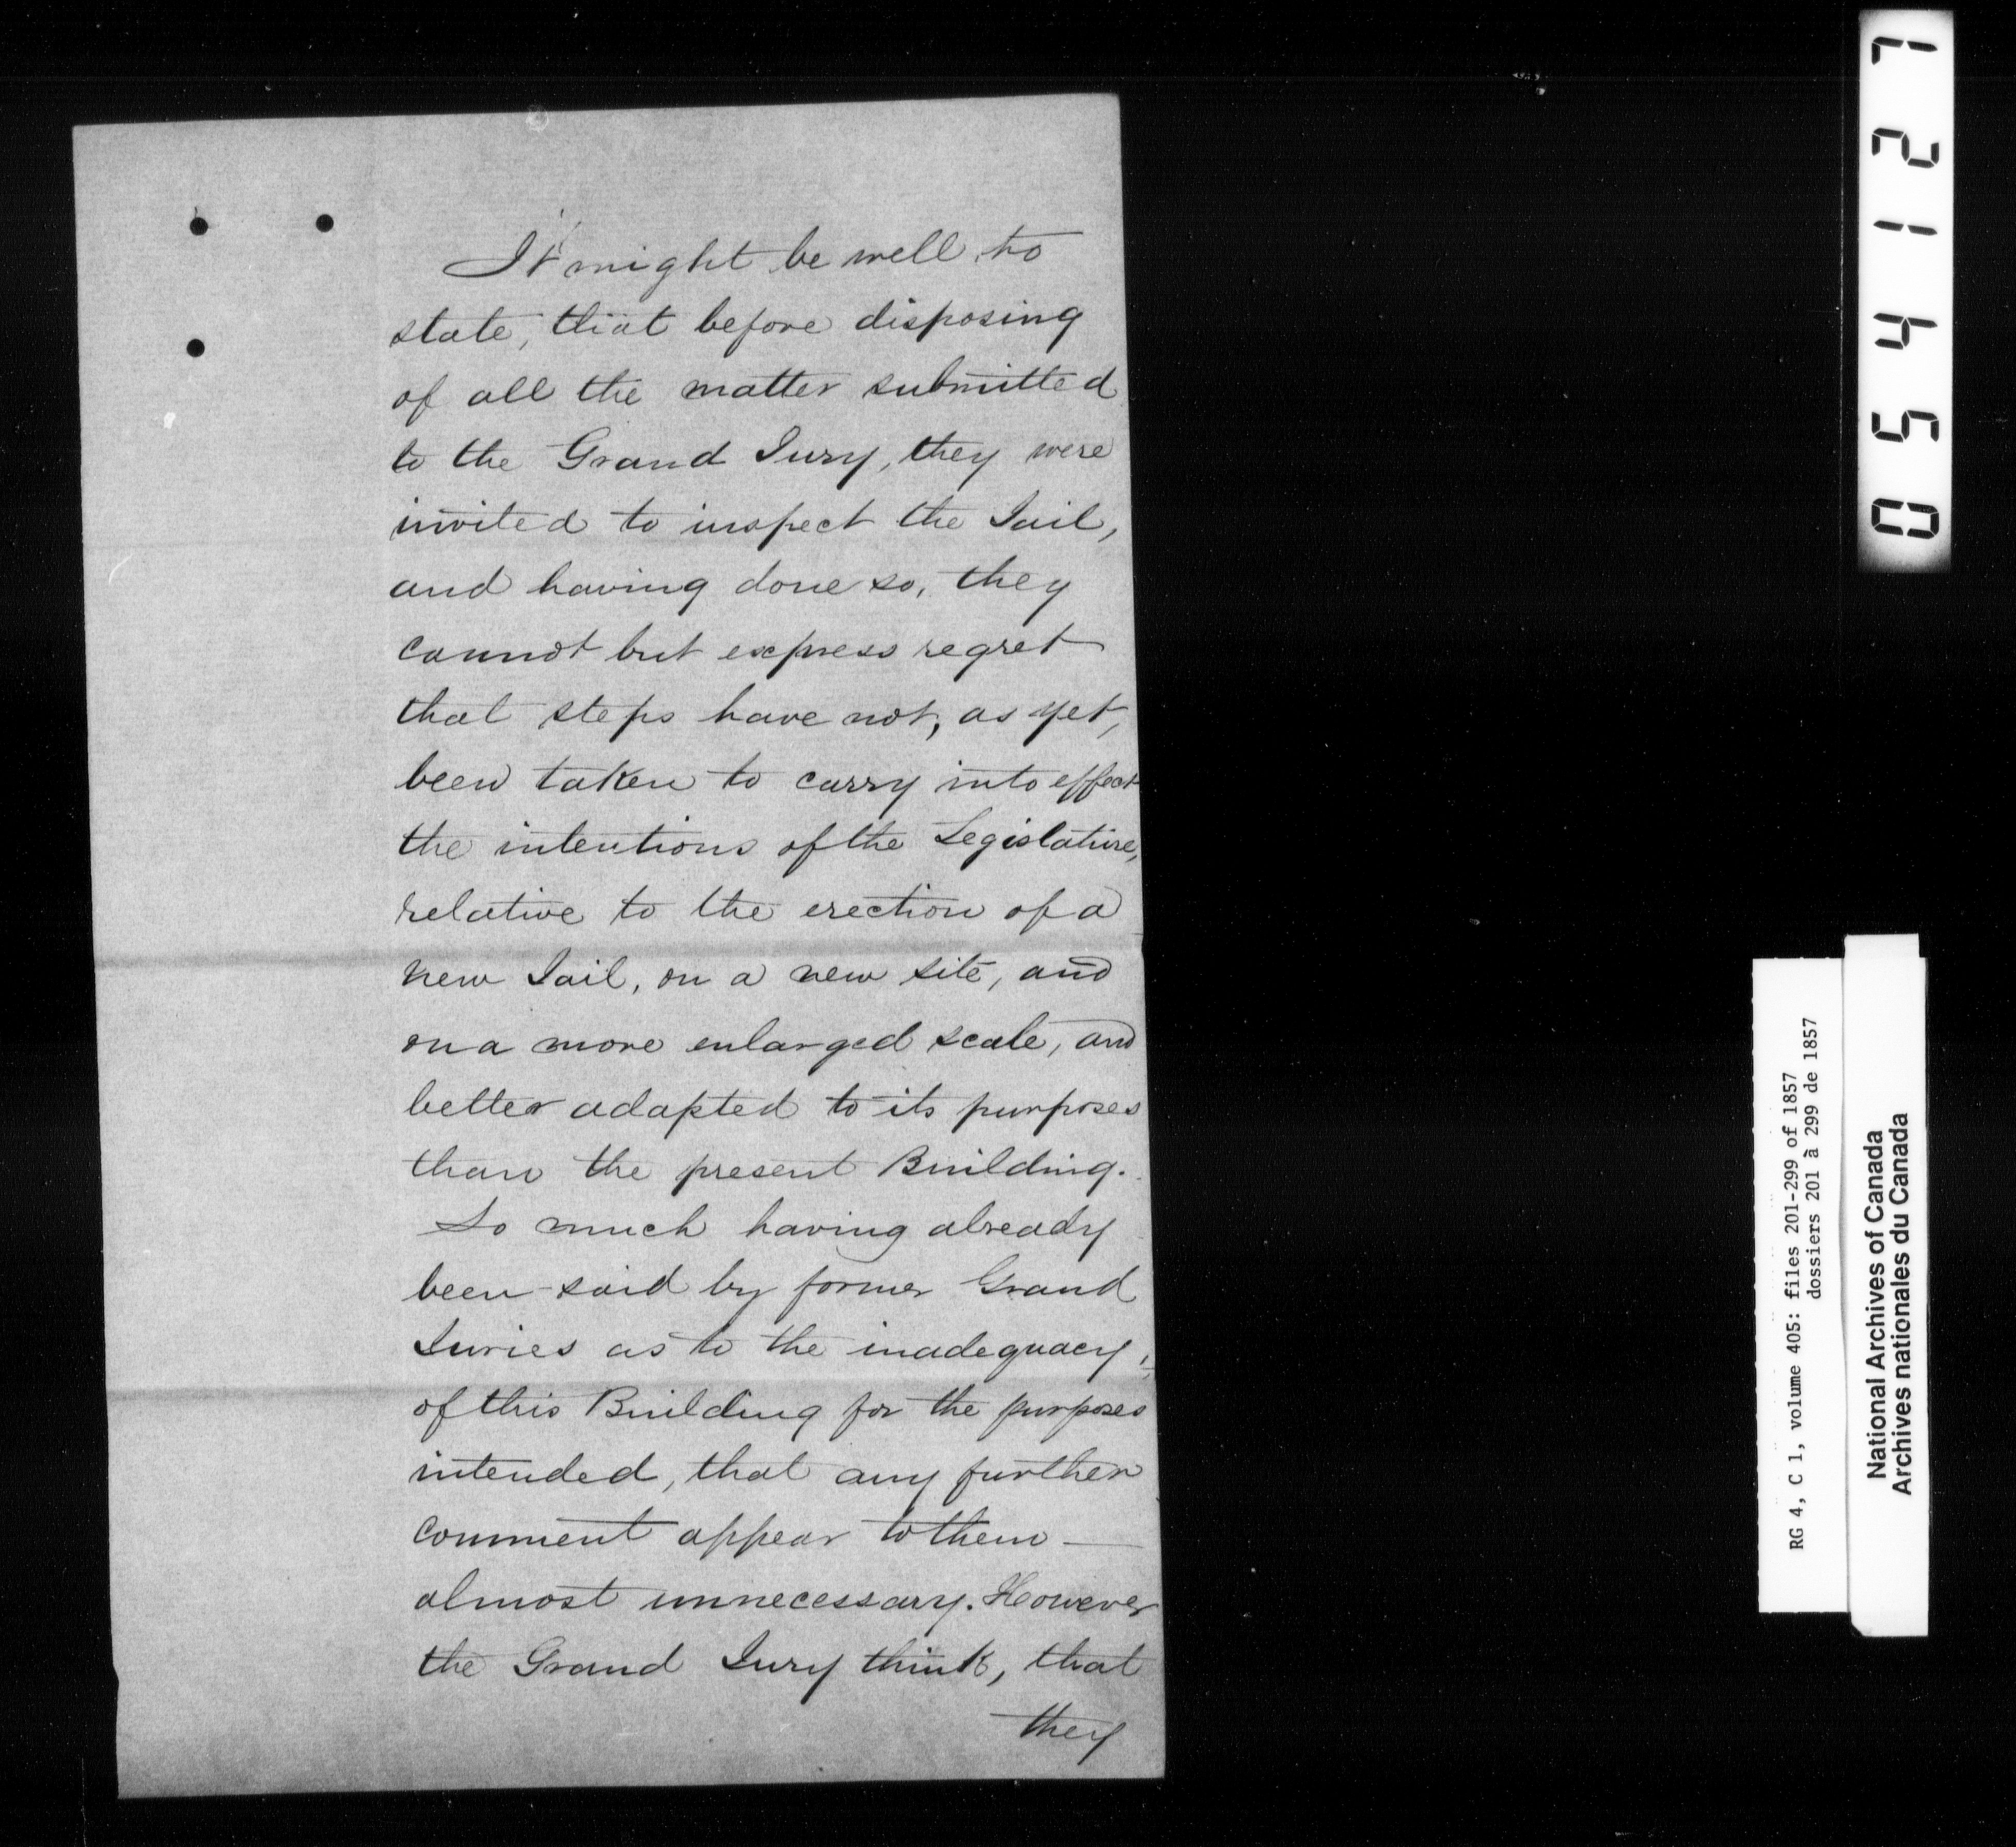 It might be well to
state, that before disposing
of all the matter submitted
to the Grand Jury, they were
invited to inspect the Jail,
and having done so, they
cannot but express regret
that steps have not, as yet,
been taken to carry into effect
the intentions of the Legislature,
relative to the erection of a
new Jail, on a new site, and
on a more enlarged scale, and
better adapted to its purposes
than the present Building.
So much having already
been said by former Grand
Juries as to the inadequacy,
of this Building for the purposes
intended, that any further
comment appear to them —
almost unnecessary. However
the Grand Jury think, that
they
054127
RG 4, C 1, volume 405: files 201-299 of 1857
dossiers 201 à 299 de 1857
National Archives of Canada
Archives nationales du Canada